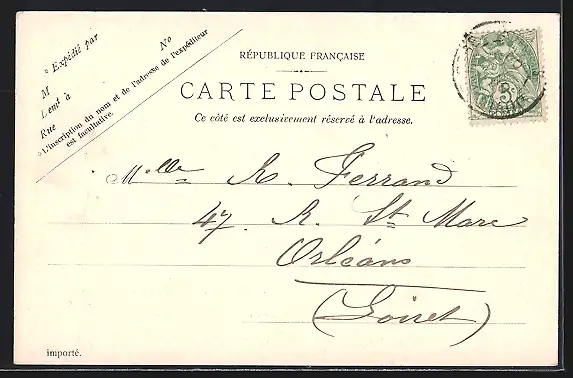 * Expédié par
M
Nº
Lent à
Rue
* L'inscription du nom et de l'adresse de l'expéditeur
est facultative.
RÉPUBLIQUE FRANÇAISE
CARTE POSTALE
Ce côté est exclusivement réservé à l'adresse.
Mlle R. Ferrand
47. R. St Marc
Orléans
(Loiret)
importé.